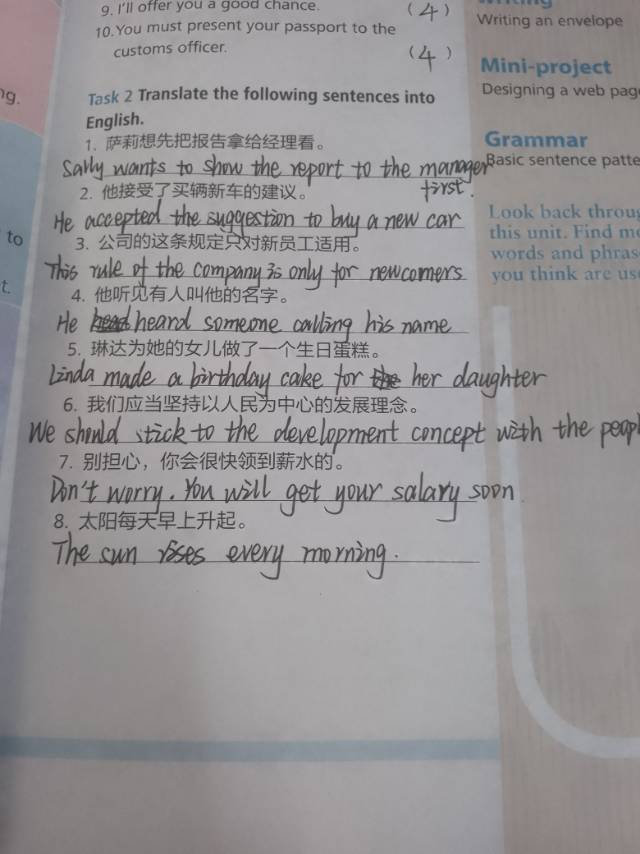 9. I'll offer you a good chance.
( 4 )
10. You must present your passport to the
customs officer.
( 4 )
Task 2 Translate the following sentences into
English.
1. 萨莉想先把报告拿给经理看。
Sally wants to show the report to the manager
first.
2. 他接受了买辆新车的建议。
He accepted the suggestion to buy a new car
3. 公司的这条规定只对新员工适用。
This rule of the company is only for newcomers
4. 他听见有人叫他的名字。
He heard someone calling his name
5. 琳达为她的女儿做了一个生日蛋糕。
Linda made a birthday cake for her daughter
6. 我们应当坚持以人民为中心的发展理念。
We should stick to the development concept with the peopl
7. 别担心，你会很快领到薪水的。
Don't worry. You will get your salary soon
8. 太阳每天早上升起。
The sun rises every morning.
Writing an envelope
Mini-project
Designing a web pag
Grammar
Basic sentence patte
Look back throu
this unit. Find m
words and phras
you think are us
ng.
to
t.